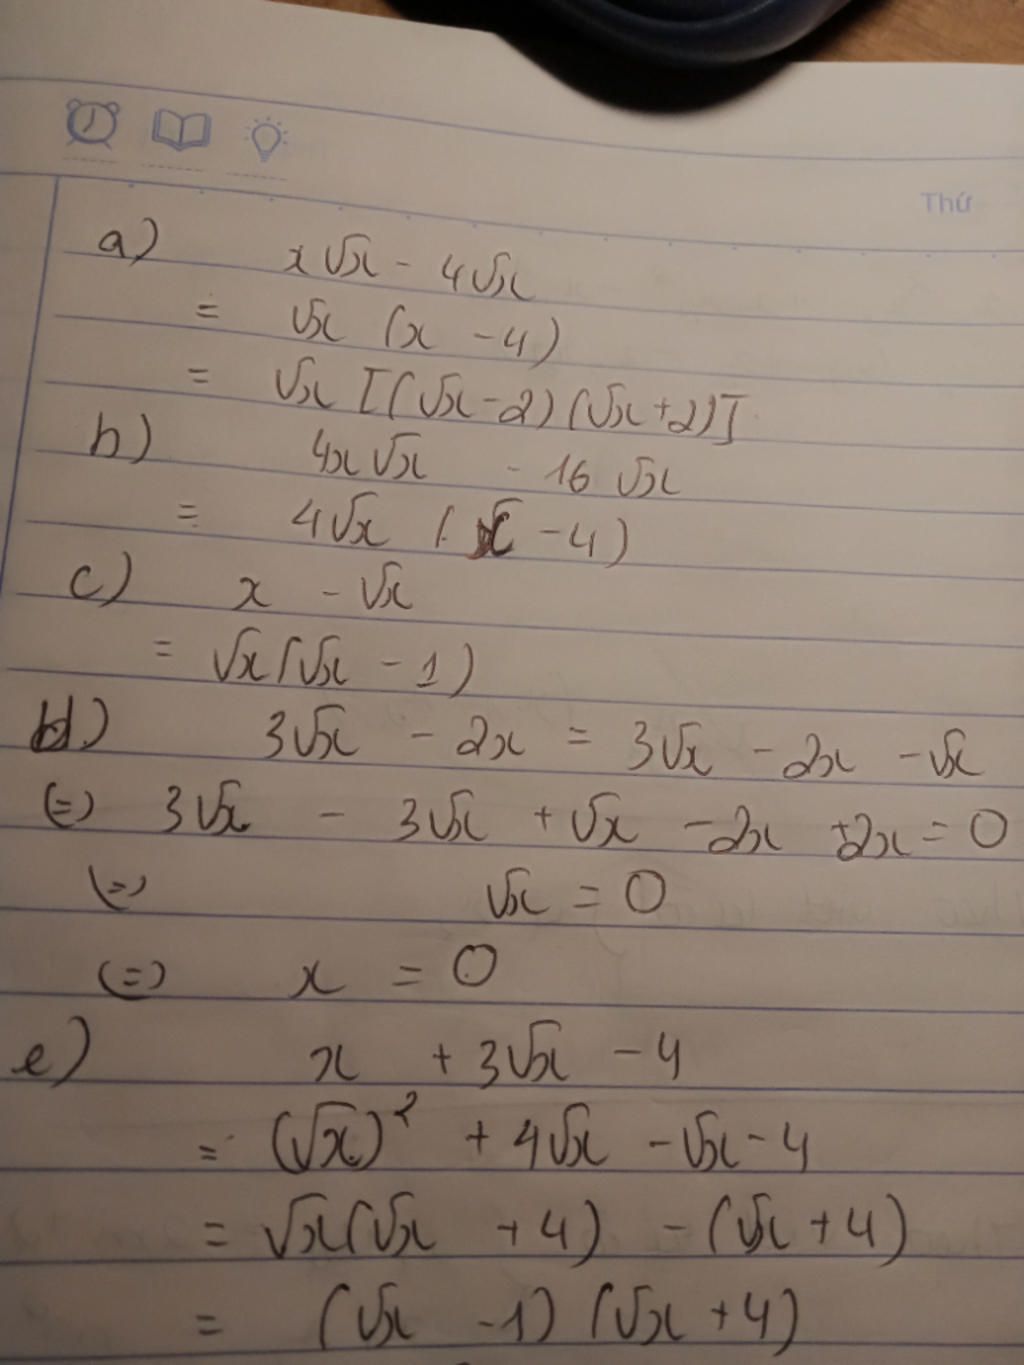 Thứ
a) x√x - 4√x
= √x (x - 4)
= √x [(√x - 2)(√x + 2)]
b) 4x√x - 16√x
= 4√x ( - 4)
c) x - √x
= √x(√x - 1)
d) 3√x - 2x = 3√x - 2x - √x
(=) 3√x - 3√x + √x - 2x + 2x = 0
(=) √x = 0
(=) x = 0
e) x + 3√x - 4
= (√x)² + 4√x - √x - 4
= √x(√x + 4) - (√x + 4)
= (√x - 1)(√x + 4)